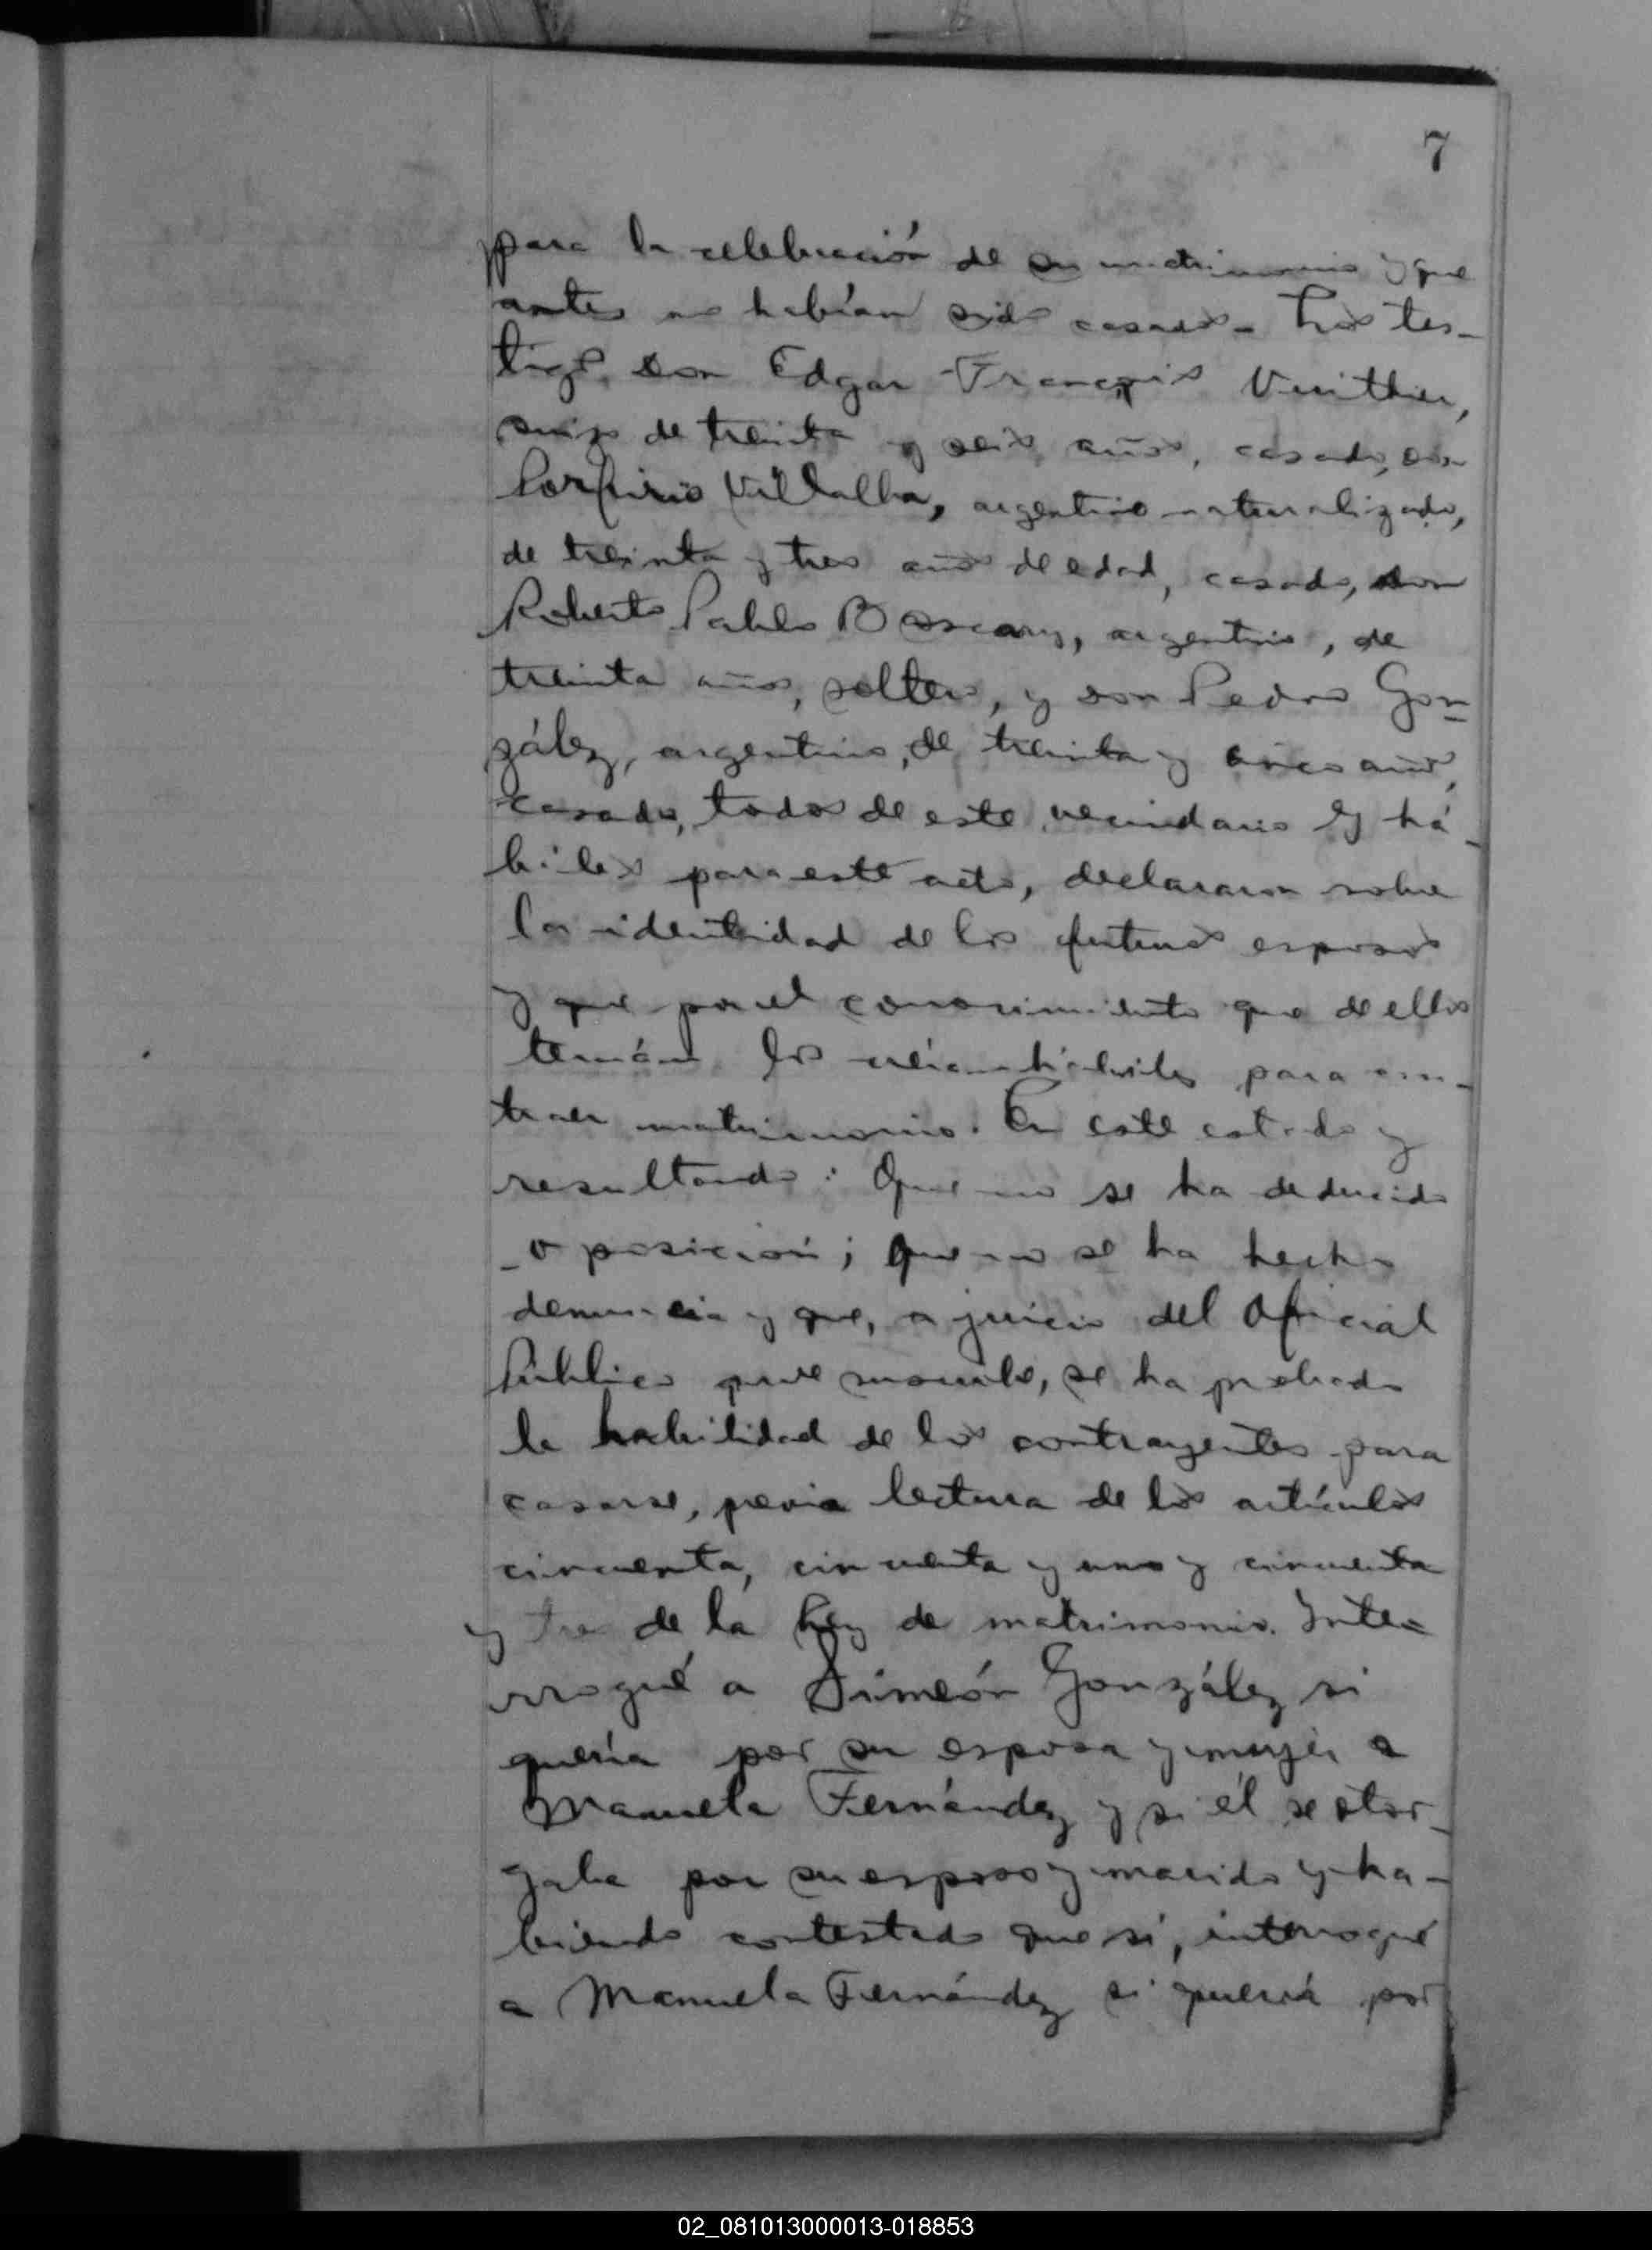 7
para la celebración de su matrimonio y que
antes no habían sido casados - Los tes-
tigos, don Edgar François Vuithier,
suizo de treinta y seis años, casado, don
Porfirio Villalba, argentino naturalizado,
de treinta y tres años de edad, casado, don
Roberto Pablo Boscary, argentino, de
treinta años, soltero, y don Pedro Gon-
zález, argentino, de treinta y cinco años,
casado, todos de este vecindario y há-
biles para este acto, declararon sobre
la identidad de los futuros esposos
y que por el conocimiento que de ellos
tenían los creían hábiles para con-
traer matrimonio. En este estado y
resultando: Que no se ha deducido
oposición; que no se ha hecho
denuncia y que, a juicio del Oficial
Público que suscribe, se ha probado
la habilidad de los contrayentes para
casarse, previa lectura de los artículos
cincuenta, cincuenta y uno y cincuenta
y tres de la Ley de matrimonio. Inte-
rrogué a Simeón González si
quería por su esposa y mujer a
Manuela Fernández y si él se otor-
gaba por su esposo y marido y ha-
biendo contestado que sí, interrogué
a Manuela Fernández si quería por
02_081013000013-018853